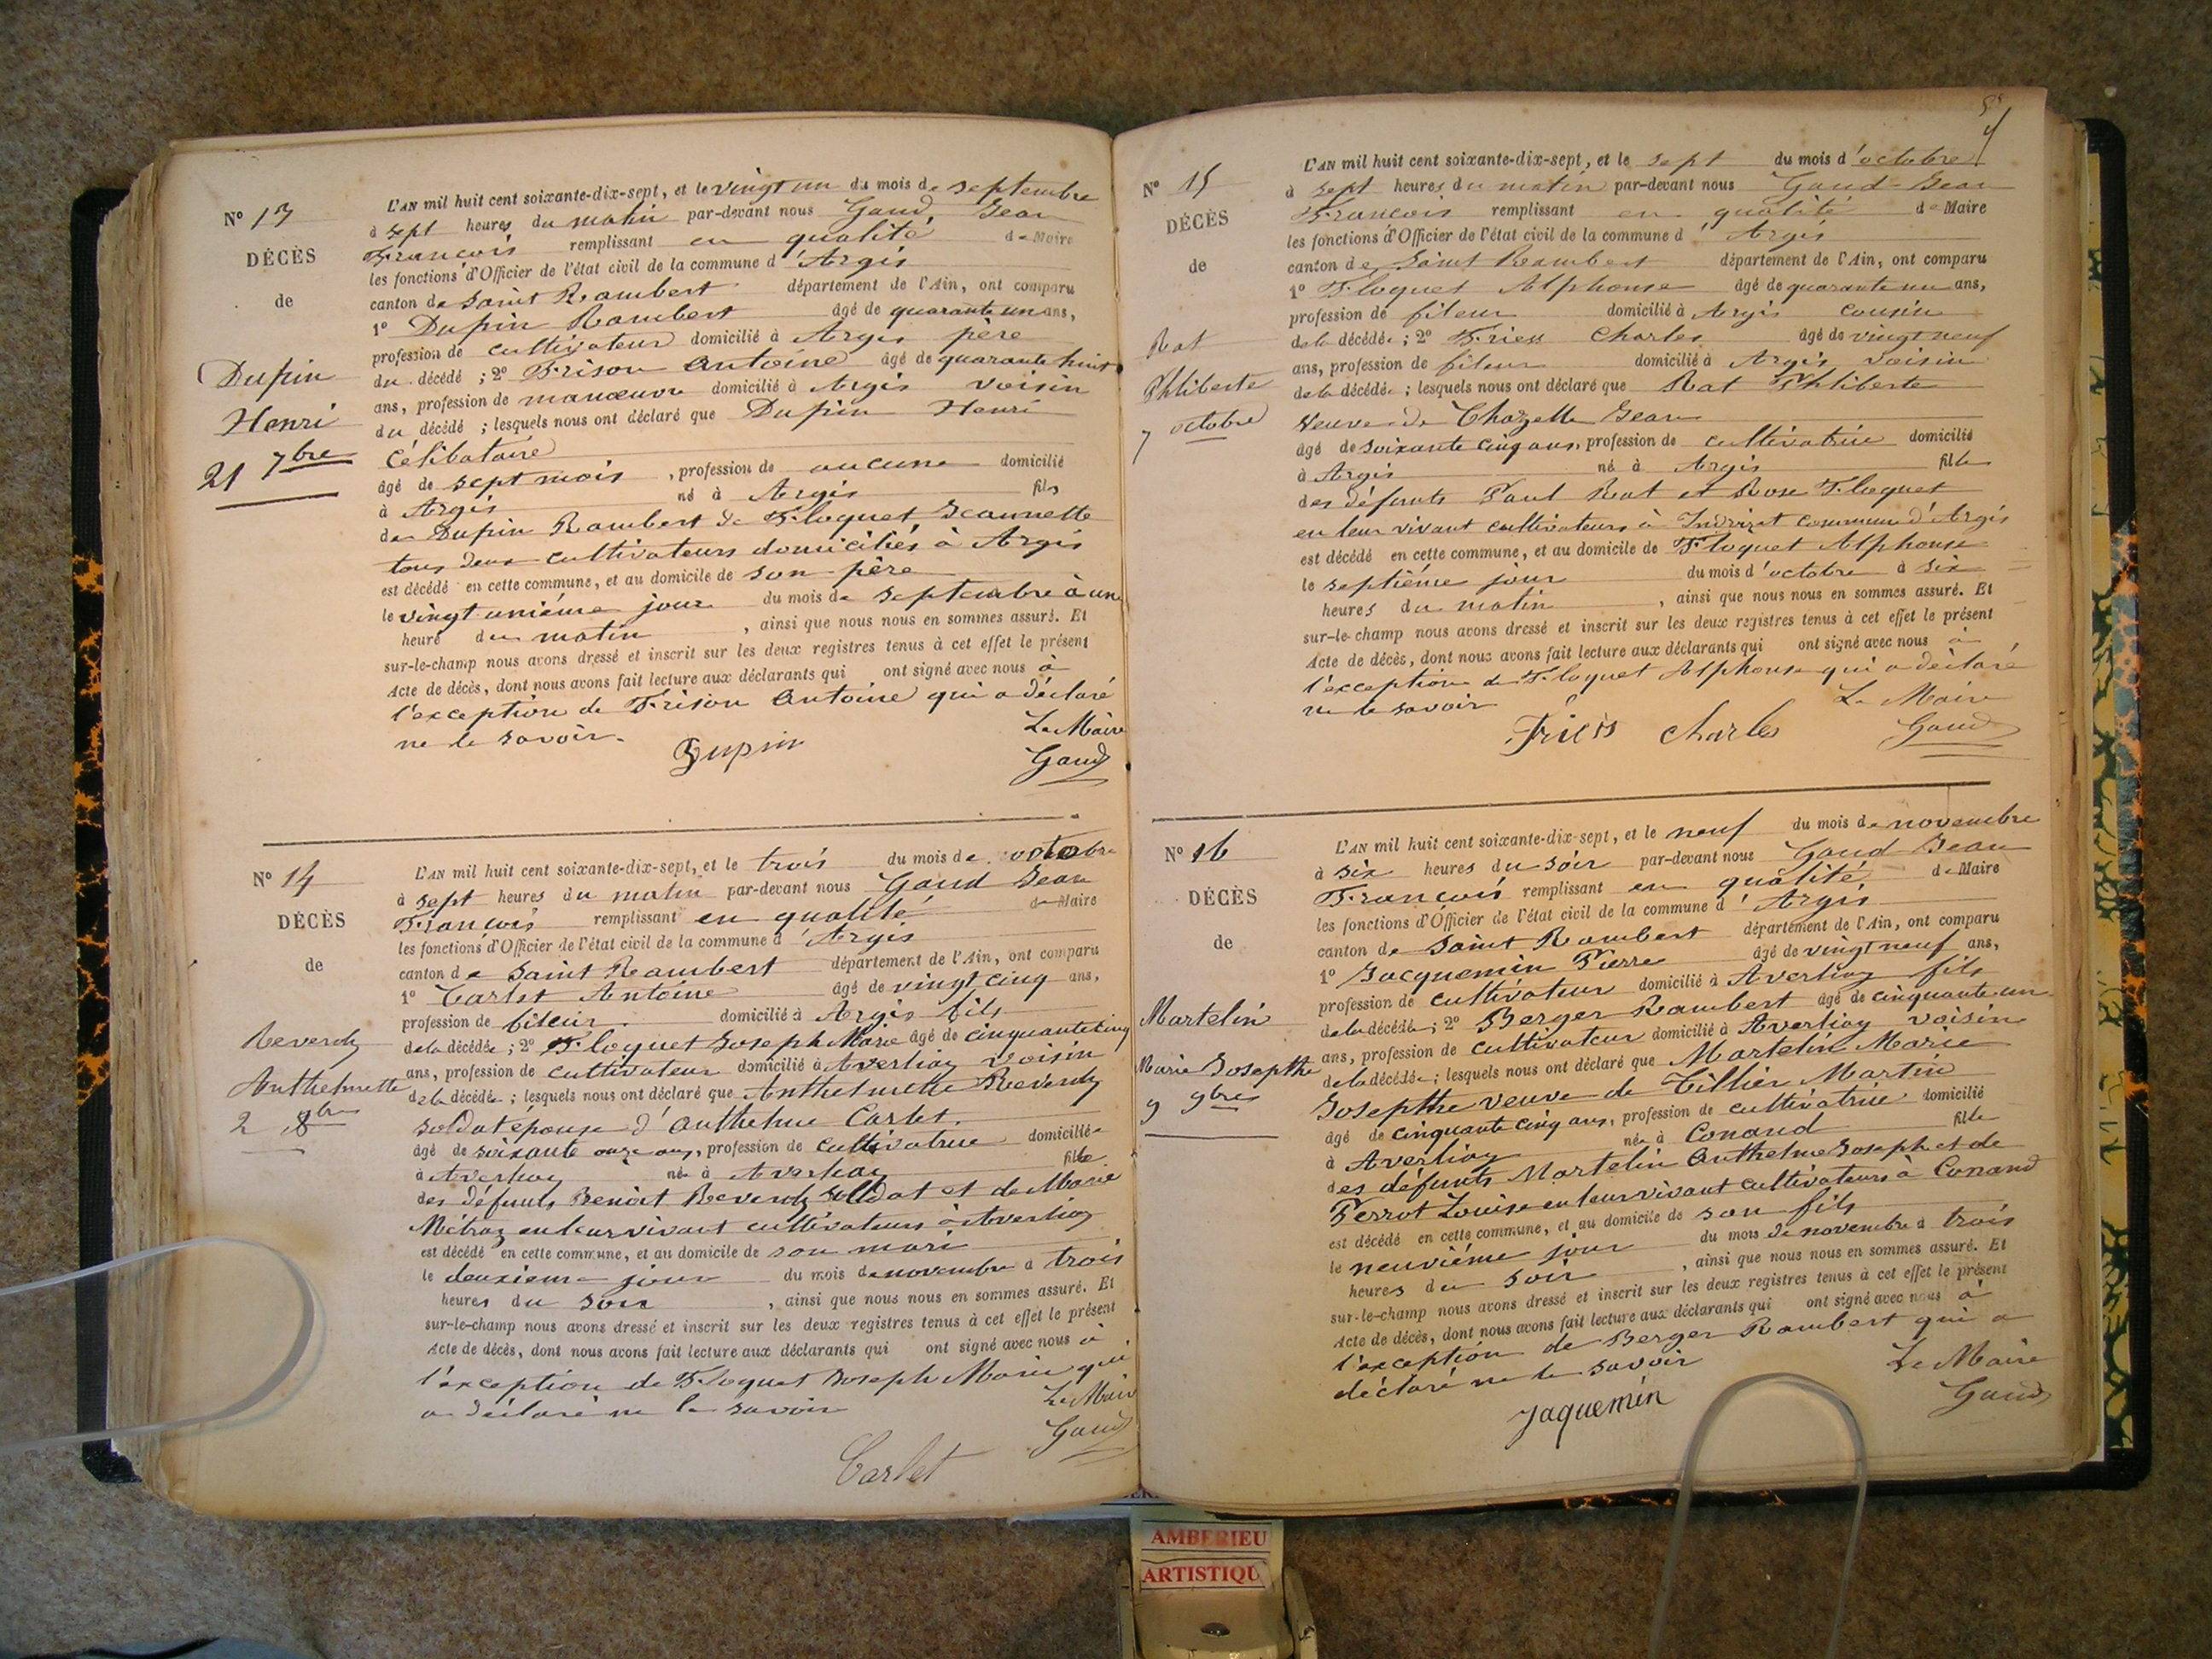 N° 13
DÉCÈS
de
Dupin
Henri
21 7bre
L'AN mil huit cent soixante-dix-sept, et le vingt un du mois de septembre
à sept heures du matin par-devant nous Gaud, Jean
François remplissant en qualité de Maire
les fonctions d'Officier de l'état civil de la commune d'Argis
canton de Saint Rambert département de l'Ain, ont comparu
1° Dupin Rambert âgé de quarante un ans,
profession de cultivateur domicilié à Argis père
du décédé ; 2° Frison Antoine âgé de quarante huit
ans, profession de manœuvre domicilié à Argis voisin
du décédé ; lesquels nous ont déclaré que Dupin Henri
Célibataire
âgé de sept mois , profession de aucune domicilié
à Argis né à Argis fils
de Dupin Rambert & Floquet Jeannette
tous deux cultivateurs domiciliés à Argis
est décédé en cette commune, et au domicile de son père
le vingt unième jour du mois de septembre à une
heure du matin , ainsi que nous nous en sommes assuré. Et
sur-le-champ nous avons dressé et inscrit sur les deux registres tenus à cet effet le présent
Acte de décès, dont nous avons fait lecture aux déclarants qui ont signé avec nous à
l'exception de Frison Antoine qui a déclaré
ne le savoir.
Le Maire
Dupin
Gaud
N° 14
DÉCÈS
de
Reverdy
Anthelmette
2 8bre
L'AN mil huit cent soixante-dix-sept, et le trois du mois de octobre
à sept heures du matin par-devant nous Gaud Jean
François remplissant en qualité de Maire
les fonctions d'Officier de l'état civil de la commune d'Argis
canton de Saint Rambert département de l'Ain, ont comparu
1° Carlet Antoine âgé de vingt cinq ans,
profession de fileur domicilié à Argis fils
de la décédée ; 2° Floquet Joseph Marie âgé de cinquante cinq
ans, profession de cultivateur domicilié à Averliaz voisin
de la décédée ; lesquels nous ont déclaré que Anthelmette Reverdy
soldat épouse d'Anthelme Carlet
âgé de soixante onze ans, profession de cultivatrice domiciliée
à Averliaz née à Averliaz fille
des défunts Benoit Reverdy soldat et de Marie
Métraz en leur vivant cultivateurs à Averliaz
est décédé en cette commune, et au domicile de son mari
le deuxième jour du mois de novembre à trois
heures du soir , ainsi que nous nous en sommes assuré. Et
sur-le-champ nous avons dressé et inscrit sur les deux registres tenus à cet effet le présent
Acte de décès, dont nous avons fait lecture aux déclarants qui ont signé avec nous à
l'exception de Floquet Joseph Marie qui
a déclaré ne le savoir
Le Maire
Gaud
Carlet
N° 15
DÉCÈS
de
Rat
Phliberte
7 octobre
L'AN mil huit cent soixante-dix-sept, et le sept du mois d'octobre
à sept heures du matin par-devant nous Gaud Jean
François remplissant en qualité de Maire
les fonctions d'Officier de l'état civil de la commune d'Argis
canton de Saint Rambert département de l'Ain, ont comparu
1° Floquet Alphonse âgé de quarante un ans,
profession de fileur domicilié à Argis cousin
de la décédée ; 2° Friess Charles âgé de vingt neuf
ans, profession de fileur domicilié à Argis voisin
de la décédée ; lesquels nous ont déclaré que Rat Phliberte
veuve de Chazelle Jean
âgé de soixante cinq ans, profession de cultivatrice domicilié
à Argis né à Argis fille
des défunts Paul Rat et Rose Floquet
en leur vivant cultivateurs à Indrizet commune d'Argis
est décédé en cette commune, et au domicile de Floquet Alphonse
le septième jour du mois d'octobre à six
heures du matin , ainsi que nous nous en sommes assuré. Et
sur-le-champ nous avons dressé et inscrit sur les deux registres tenus à cet effet le présent
Acte de décès, dont nous avons fait lecture aux déclarants qui ont signé avec nous à
l'exception de Floquet Alphonse qui a déclaré
ne le savoir
Le Maire
Friess Charles
Gaud
N° 16
DÉCÈS
de
Martelin
Marie Josepthe
9 9bre
L'AN mil huit cent soixante-dix-sept, et le neuf du mois de novembre
à six heures du soir par-devant nous Gaud Jean
François remplissant en qualité de Maire
les fonctions d'Officier de l'état civil de la commune d'Argis
canton de Saint Rambert département de l'Ain, ont comparu
1° Jacquemin Pierre âgé de vingt neuf ans,
profession de cultivateur domicilié à Averliaz fils
de la décédée ; 2° Berger Rambert âgé de cinquante un
ans, profession de cultivateur domicilié à Averliaz voisin
de la décédée ; lesquels nous ont déclaré que Martelin Marie
Josepthe veuve de Tillier Martin
âgé de cinquante cinq ans, profession de cultivatrice domicilié
à Averliaz née à Conand fille
des défunts Martelin Anthelme Joseph et de
Perrot Louise en leur vivant cultivateurs à Conand
est décédé en cette commune, et au domicile de son fils
le neuvième jour du mois de novembre à trois
heures du soir , ainsi que nous nous en sommes assuré. Et
sur-le-champ nous avons dressé et inscrit sur les deux registres tenus à cet effet le présent
Acte de décès, dont nous avons fait lecture aux déclarants qui ont signé avec nous à
l'exception de Berger Rambert qui a
déclaré ne le savoir
Le Maire
Jaquemin
Gaud
AMBERIEU
ARTISTIQU